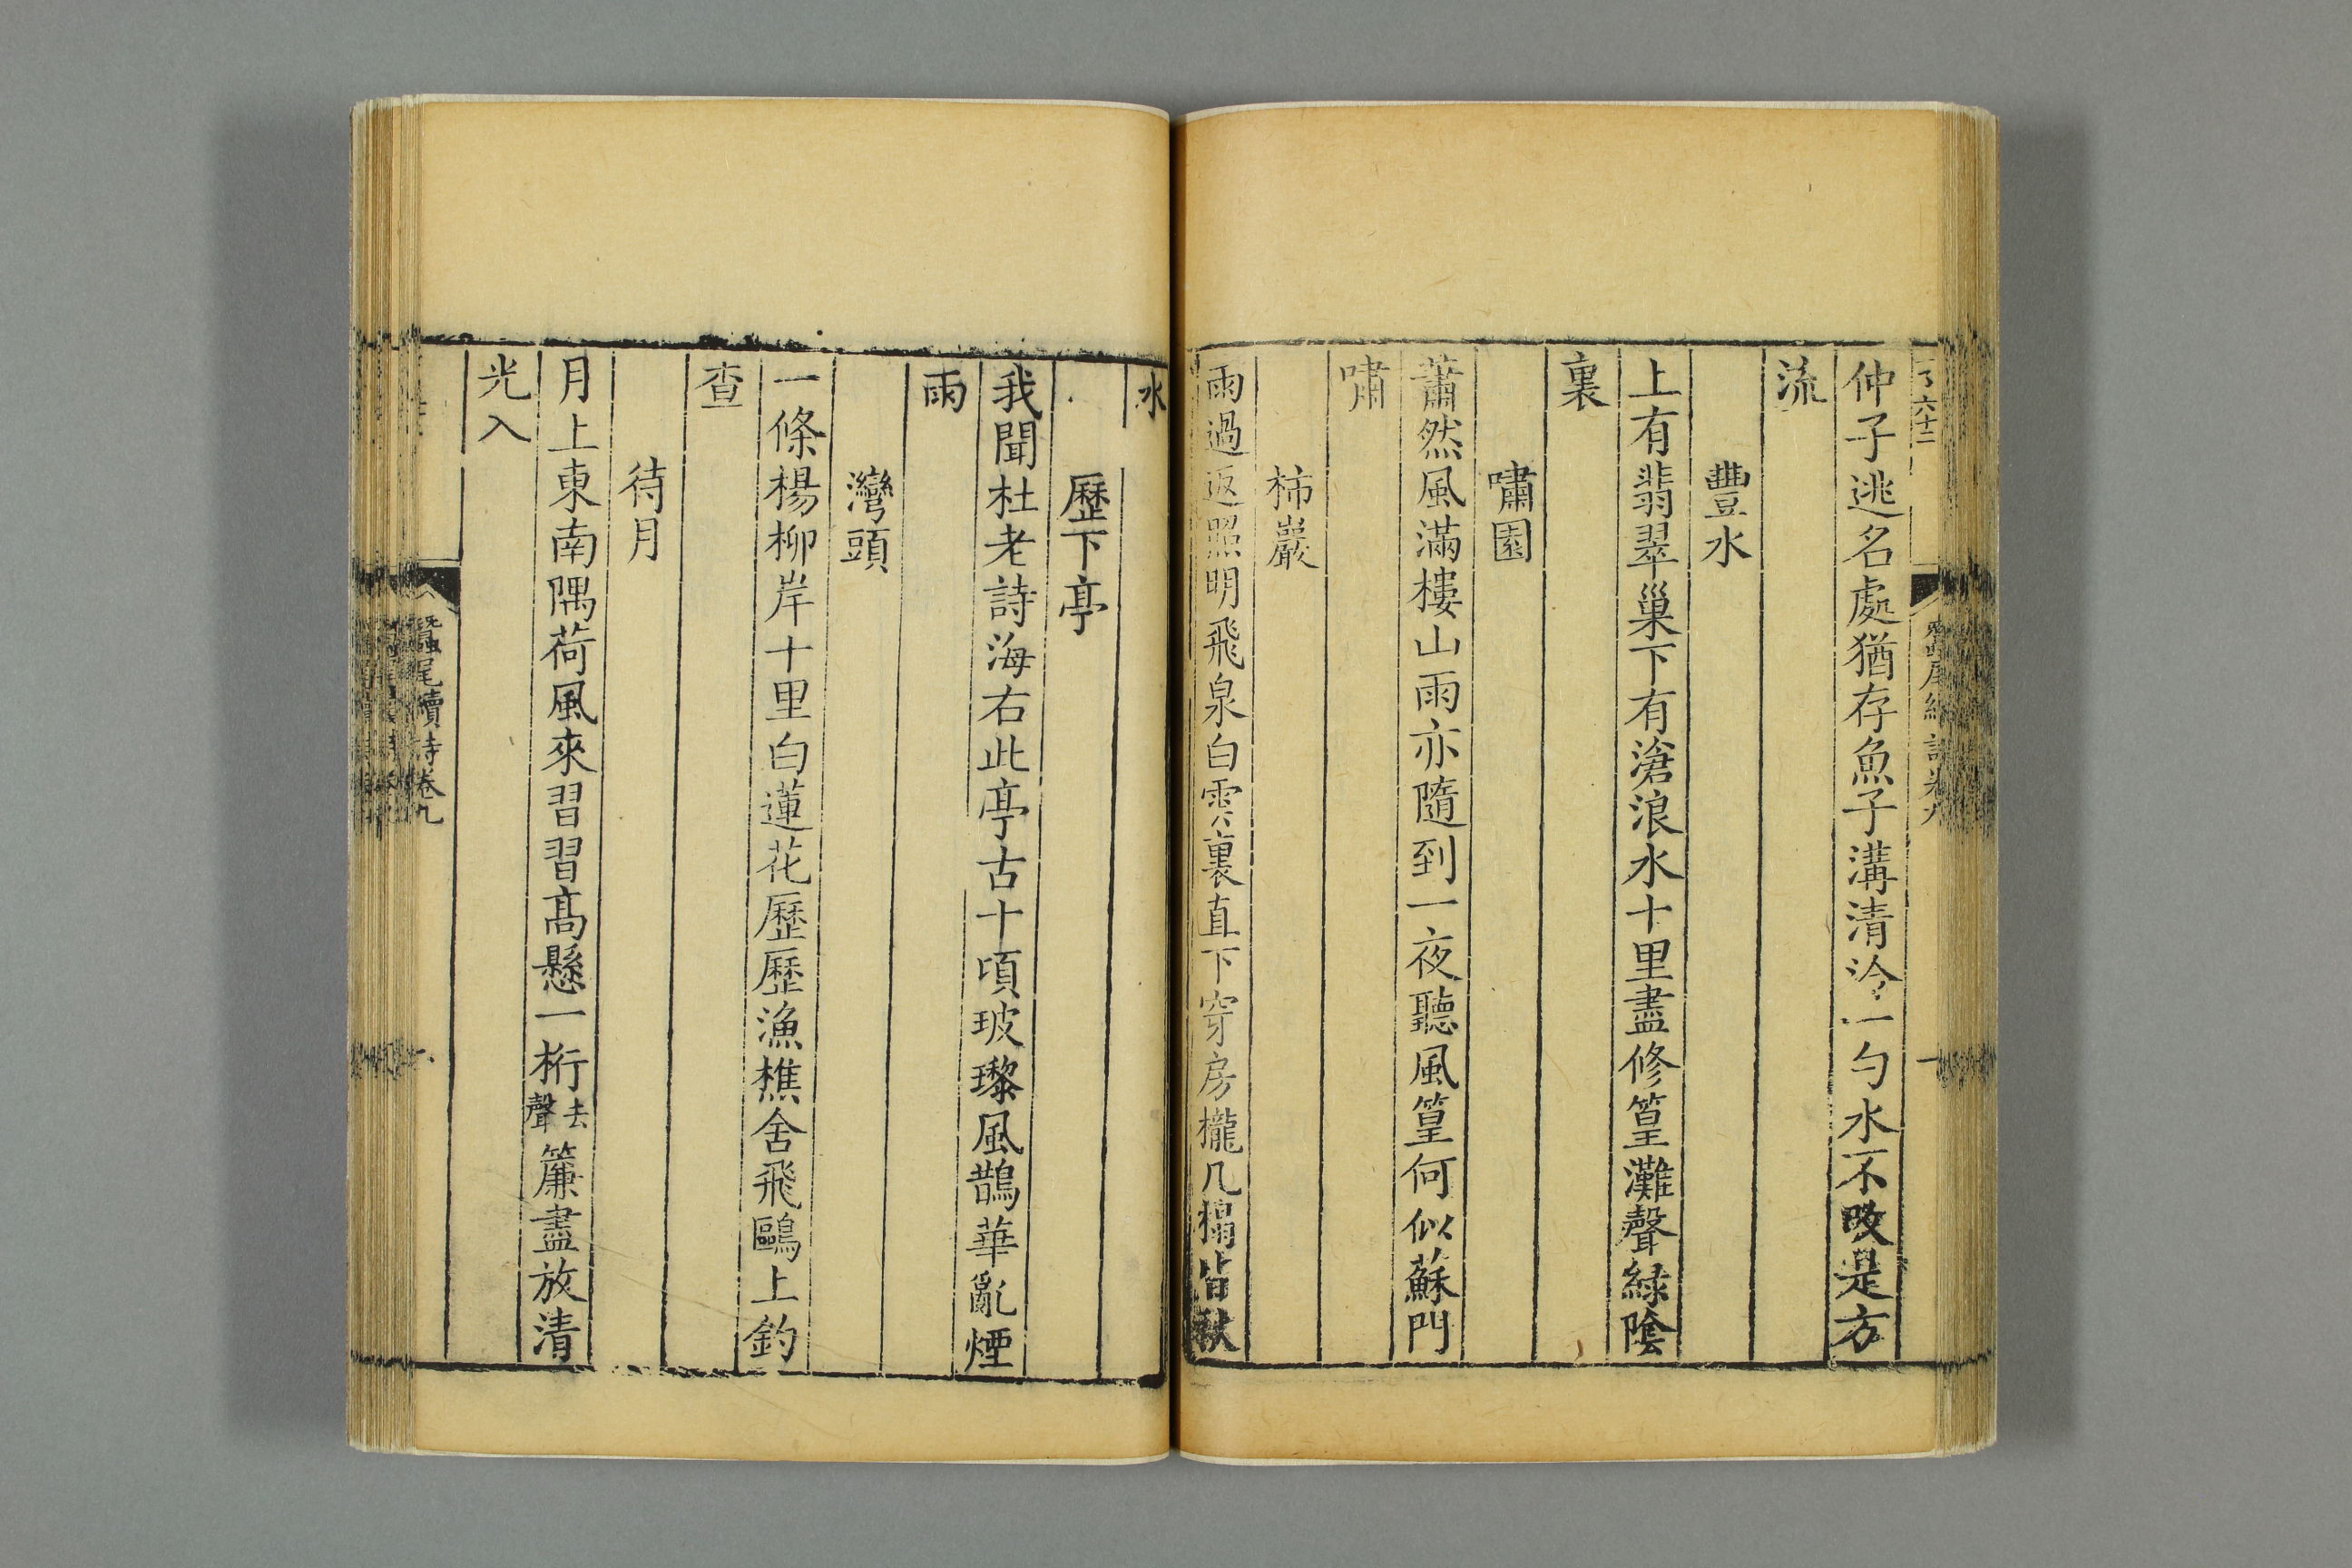 仲子逃名處猶存魚子溝清泠一勺水不改是方
流
豐水
上有翡翠巢下有滄浪水十里盡修篁灘聲綠陰
裏
嘯園
蕭然風滿樓山雨亦隨到一夜聽風篁何似蘇門
嘯
柿巖
雨過返照明飛泉白雲裏直下穿房櫳几榻皆秋
水
歷下亭
我聞杜老詩海右此亭古十頃玻瓈風鵲華亂煙
雨
灣頭
一條楊柳岸十里白蓮花歷歷漁樵舍飛鷗上釣
查
待月
月上東南隅荷風來習習高懸一桁去聲簾盡放清
光入
蠶尾續詩卷九